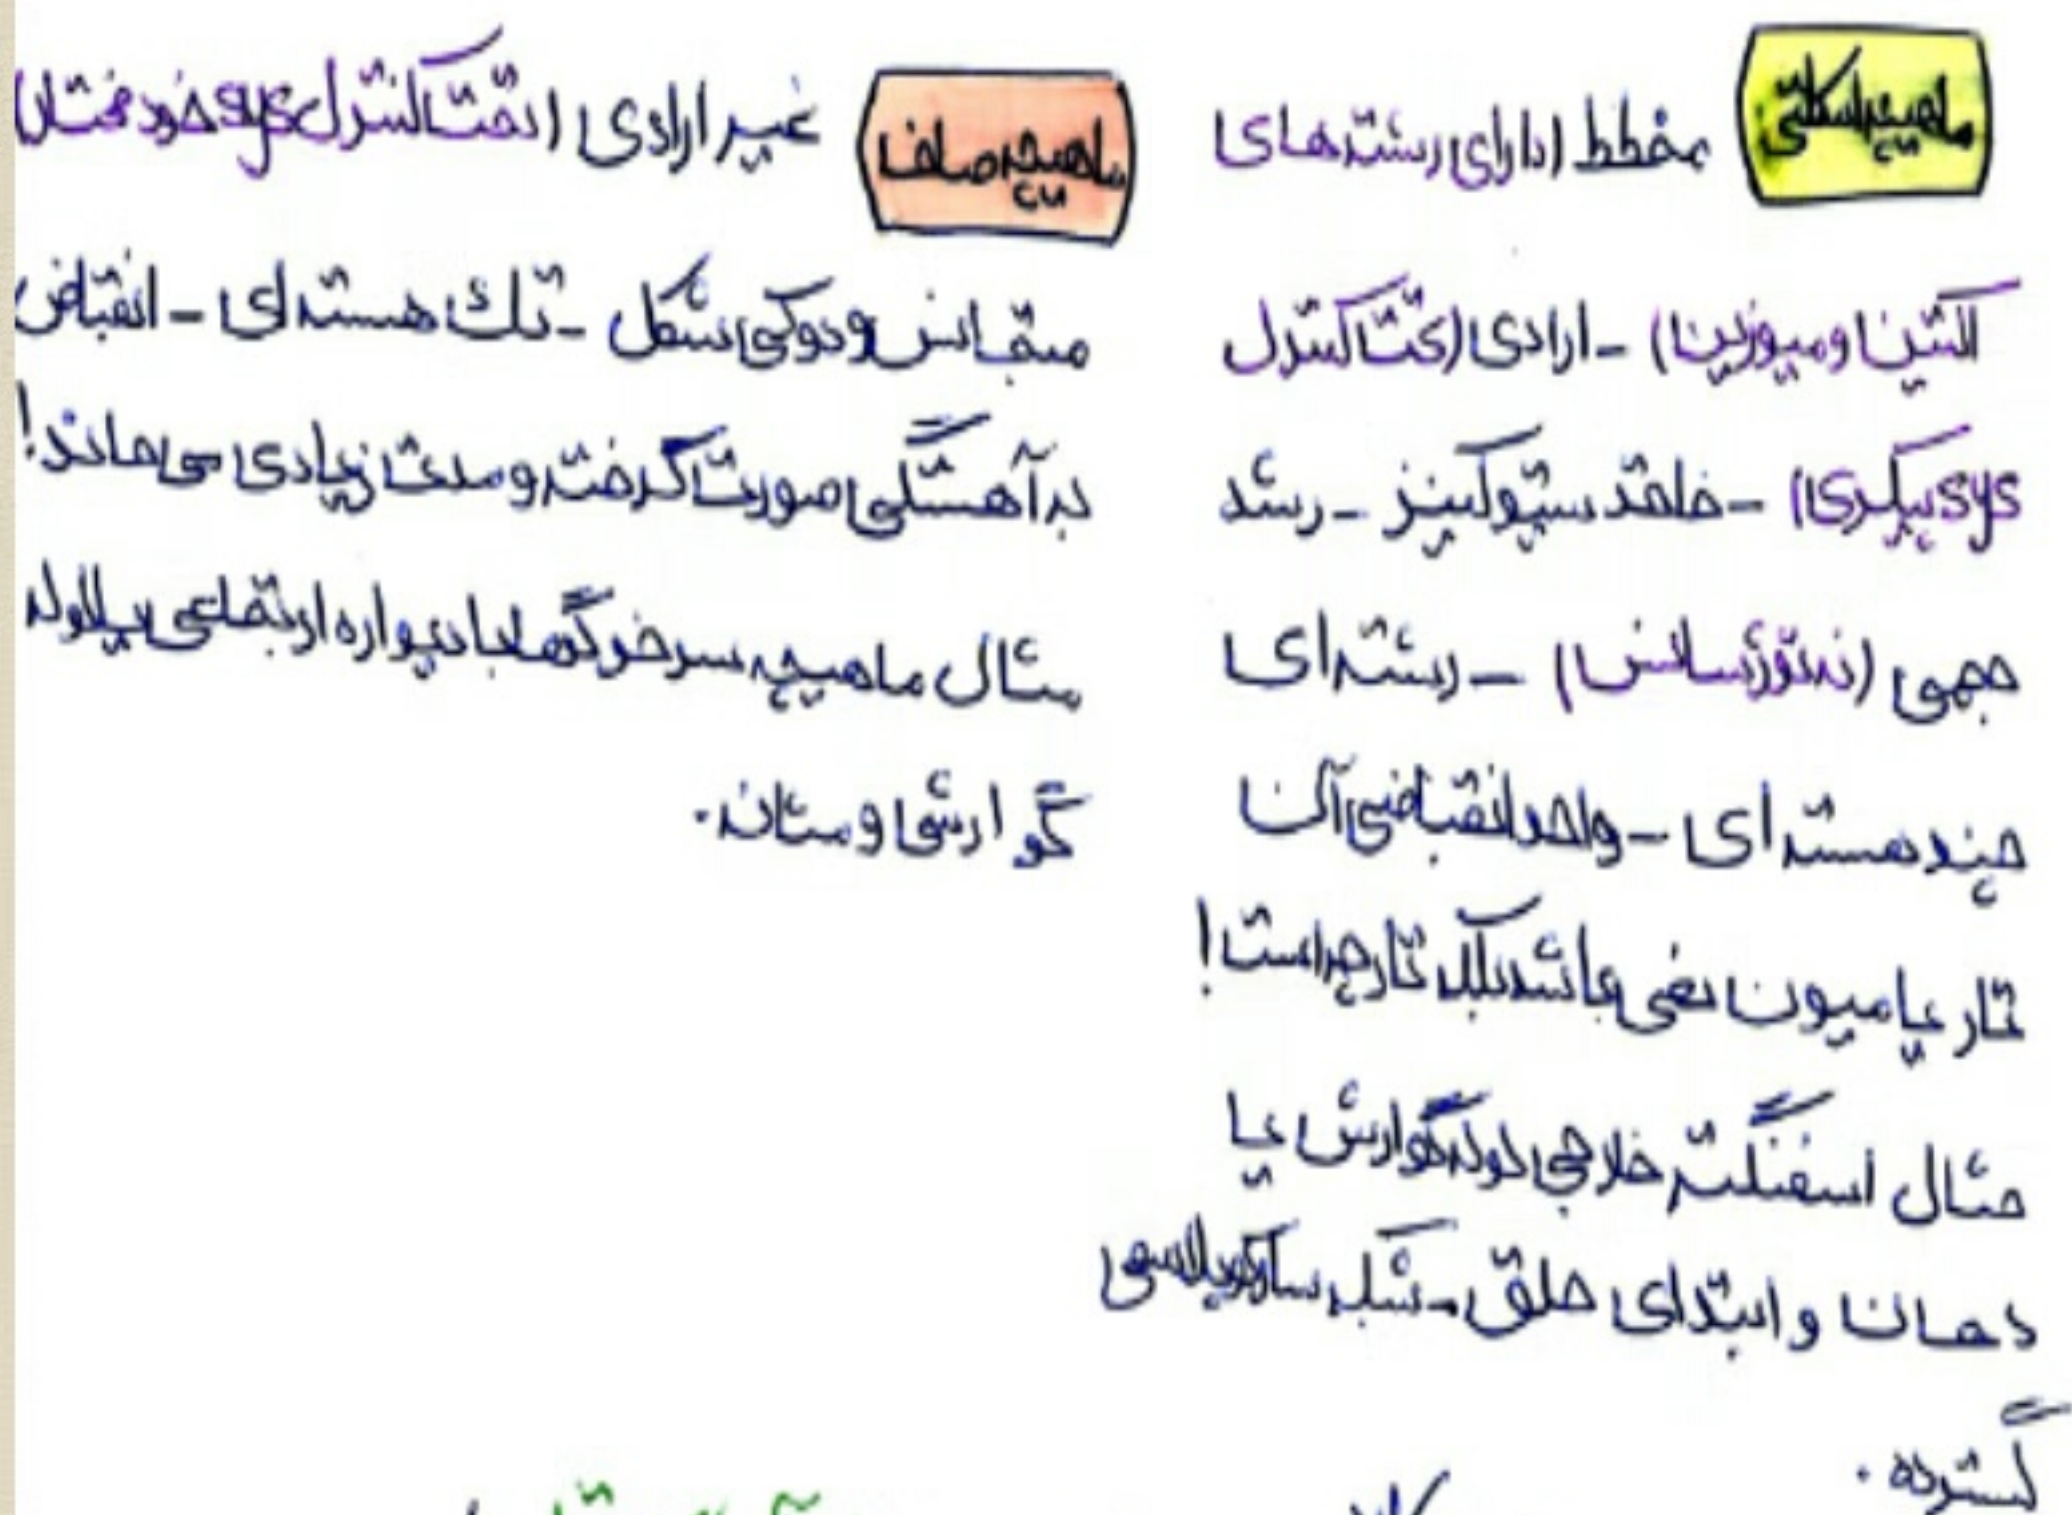 ماهیچه اسکلتی مخطط (دارای رشته‌های
اکتین و میوزین) - ارادی (تحت کنترل
sys پیکری) - فاقد سیتوکینز - رشد
حجمی (نه توژسانس) - رشته‌ای
چند هسته‌ای - واحد انقباضی آن
تار یا میون نمی باشد بلکه تارچه است!
مثال اسفنگتر خارجی لوله گوارش یا
دهان و ابتدای حلق - شبکه سارکوپلاسمی
گسترده.
ماهیچه صاف غیر ارادی (تحت کنترل sys خود مختار)
متقانس و دوکی شکل - تک هسته‌ای - انقباض
به آهستگی صورت گرفته و مدت زیادی می ماند!
مثال ماهیچه سرخرگ‌ها با دیواره ارتجاعی یا لوله
گوارشی و مثانه.